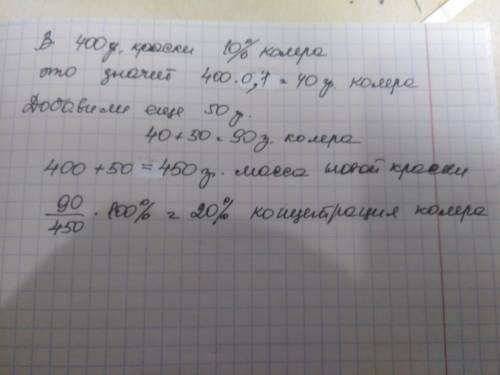 В 400 г. краски 10% колера
это значит 400 · 0,1 = 40 г. колера
Добавили еще 50 г.
40 + 50 = 90 г. колера
400 + 50 = 450 г. масса новой краски
90/450 · 100% = 20% концентрация колера